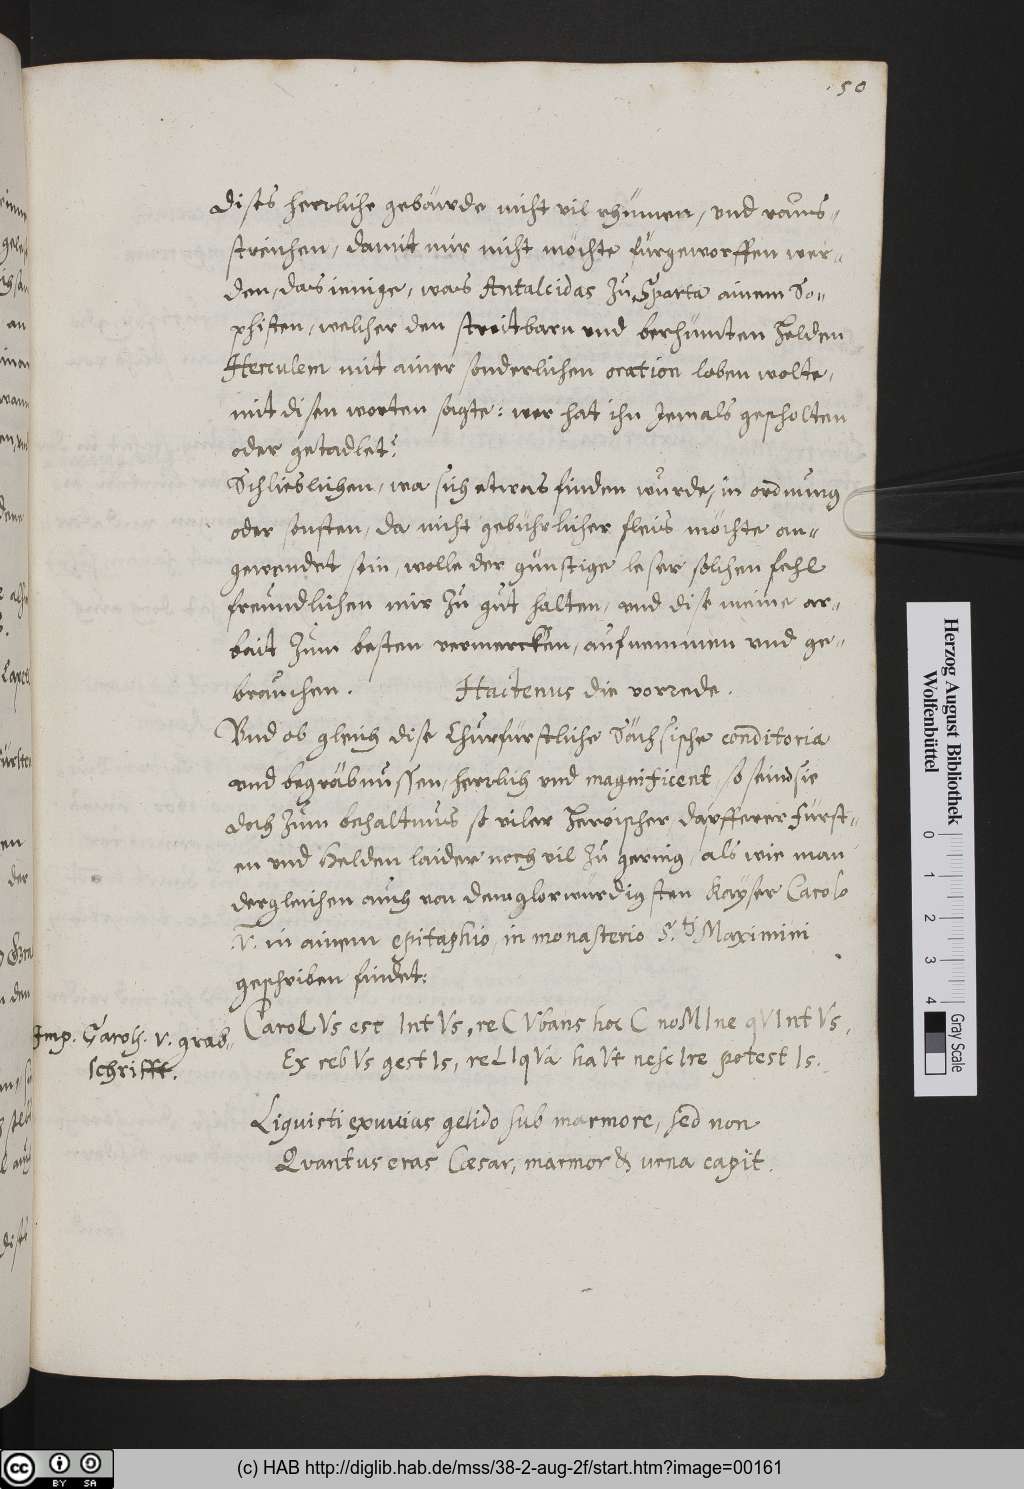 50
dises herrliche gebäwde nicht vil rhümen, und raus-
streichen, damit mir nicht möchte fürgeworffen wer-
den, das ienige, was Antalcidas zu Sparta ainem So-
phisten, welcher den streitbarn und berhümten Helden
Herculem mit ainer sonderlichen oration loben wolte,
mit disen worten sagte: wer hat ihn jemals gescholten
oder getadlet?
Schlieslichen, wa sich etwas finden wurde, in ordnung
oder sonsten, da nicht gebührlicher fleis möchte an-
gewendet sein, wolle der günstige leser solchen fehl
freundlichen mir zu gut halten, und dise meine ar-
bait zum besten vermercken, aufnemmen und ge-
brauchen. Hactenus die vorrede.
Und ob gleich dise Churfürstliche Sächsische conditoria
und begräbnussen, herrlich und magnificent, so seind sie
doch zum behaltnus so viler Heroischer dapfferer Fürst-
en und Helden laider noch vil zu gering, als wie man
dergleichen auch von dem glorwürdigsten Kayser Carolo
V. in ainem epitaphio, in monasterio S.ti Maximini
geschriben findet:
Imp. Caroli. V. grab-
schrifft.
CaroLVs est IntVs, reCVbans hoc C noMIne qVIntVs,
Ex rebVs gestIs, reLIqVa haVt nescIre potestIs.
Liquisti exuvias gelido sub marmore, sed non
Qvantus eras Cæsar, marmor & urna capit.
Herzog August Bibliothek
Wolfenbüttel
0 1 2 3 4
Gray Scale
cc BY SA
(c) HAB http://diglib.hab.de/mss/38-2-aug-2f/start.htm?image=00161